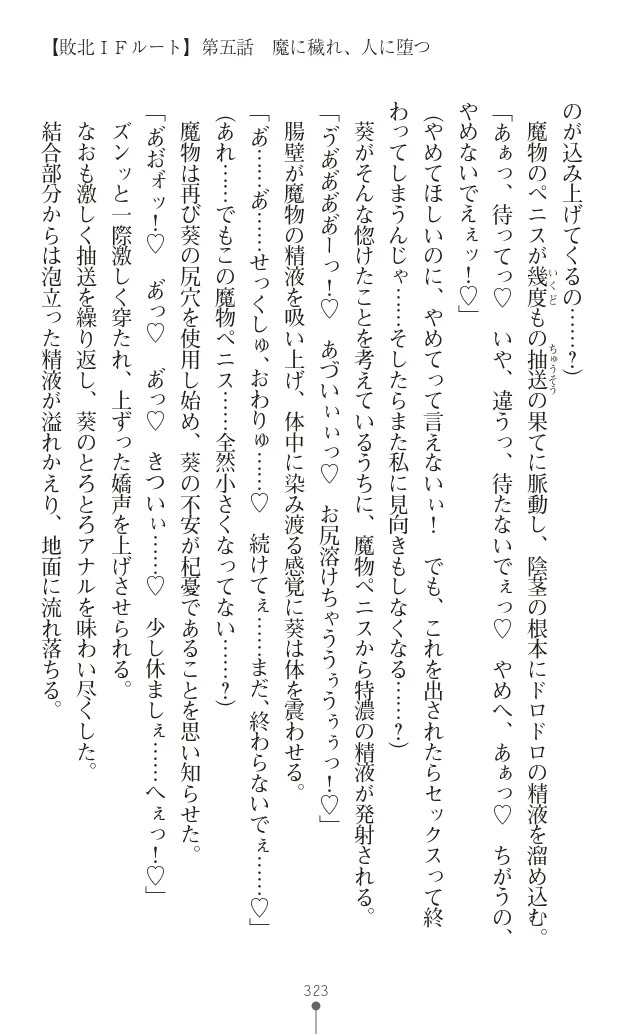 【敗北ＩＦルート】 第五話　魔に穢れ、人に堕つ
のが込み上げてくるの……？)
　魔物のペニスが幾度もの抽送の果てに脈動し、陰茎の根本にドロドロの精液を溜め込む。
いくど
ちゅうそう
「あぁっ、待ってっ♡　いや、違うっ、待たないでぇっ♡　やめへ、あぁっ♡　ちがうの、
やめないでえぇッ！♡」
(やめてほしいのに、やめてって言えないぃ！　でも、これを出されたらセックスって終
わってしまうんじゃ……そしたらまた私に見向きもしなくなる……？)
　葵がそんな惚けたことを考えているうちに、魔物ペニスから特濃の精液が発射される。
「ゔあ゙あ゙あ゙あ゙ーっ！♡　あづいぃぃっ♡　お尻溶けちゃううぅうぅぅっ！♡」
　腸壁が魔物の精液を吸い上げ、体中に染み渡る感覚に葵は体を震わせる。
「あ゙……あ゙……せっくしゅ、おわりゅ……♡　続けてぇ……まだ、終わらないでぇ……♡」
(あれ……でもこの魔物ペニス……全然小さくなってない……？)
　魔物は再び葵の尻穴を使用し始め、葵の不安が杞憂であることを思い知らせた。
「あ゙お゙ォッ！♡　あ゙っ♡　あ゙っ♡　きついぃ……♡　少し休ましぇ……へぇっ！♡」
　ズンッと一際激しく穿たれ、上ずった嬌声を上げさせられる。
　なおも激しく抽送を繰り返し、葵のとろとろアナルを味わい尽くした。
　結合部分からは泡立った精液が溢れかえり、地面に流れ落ちる。
323